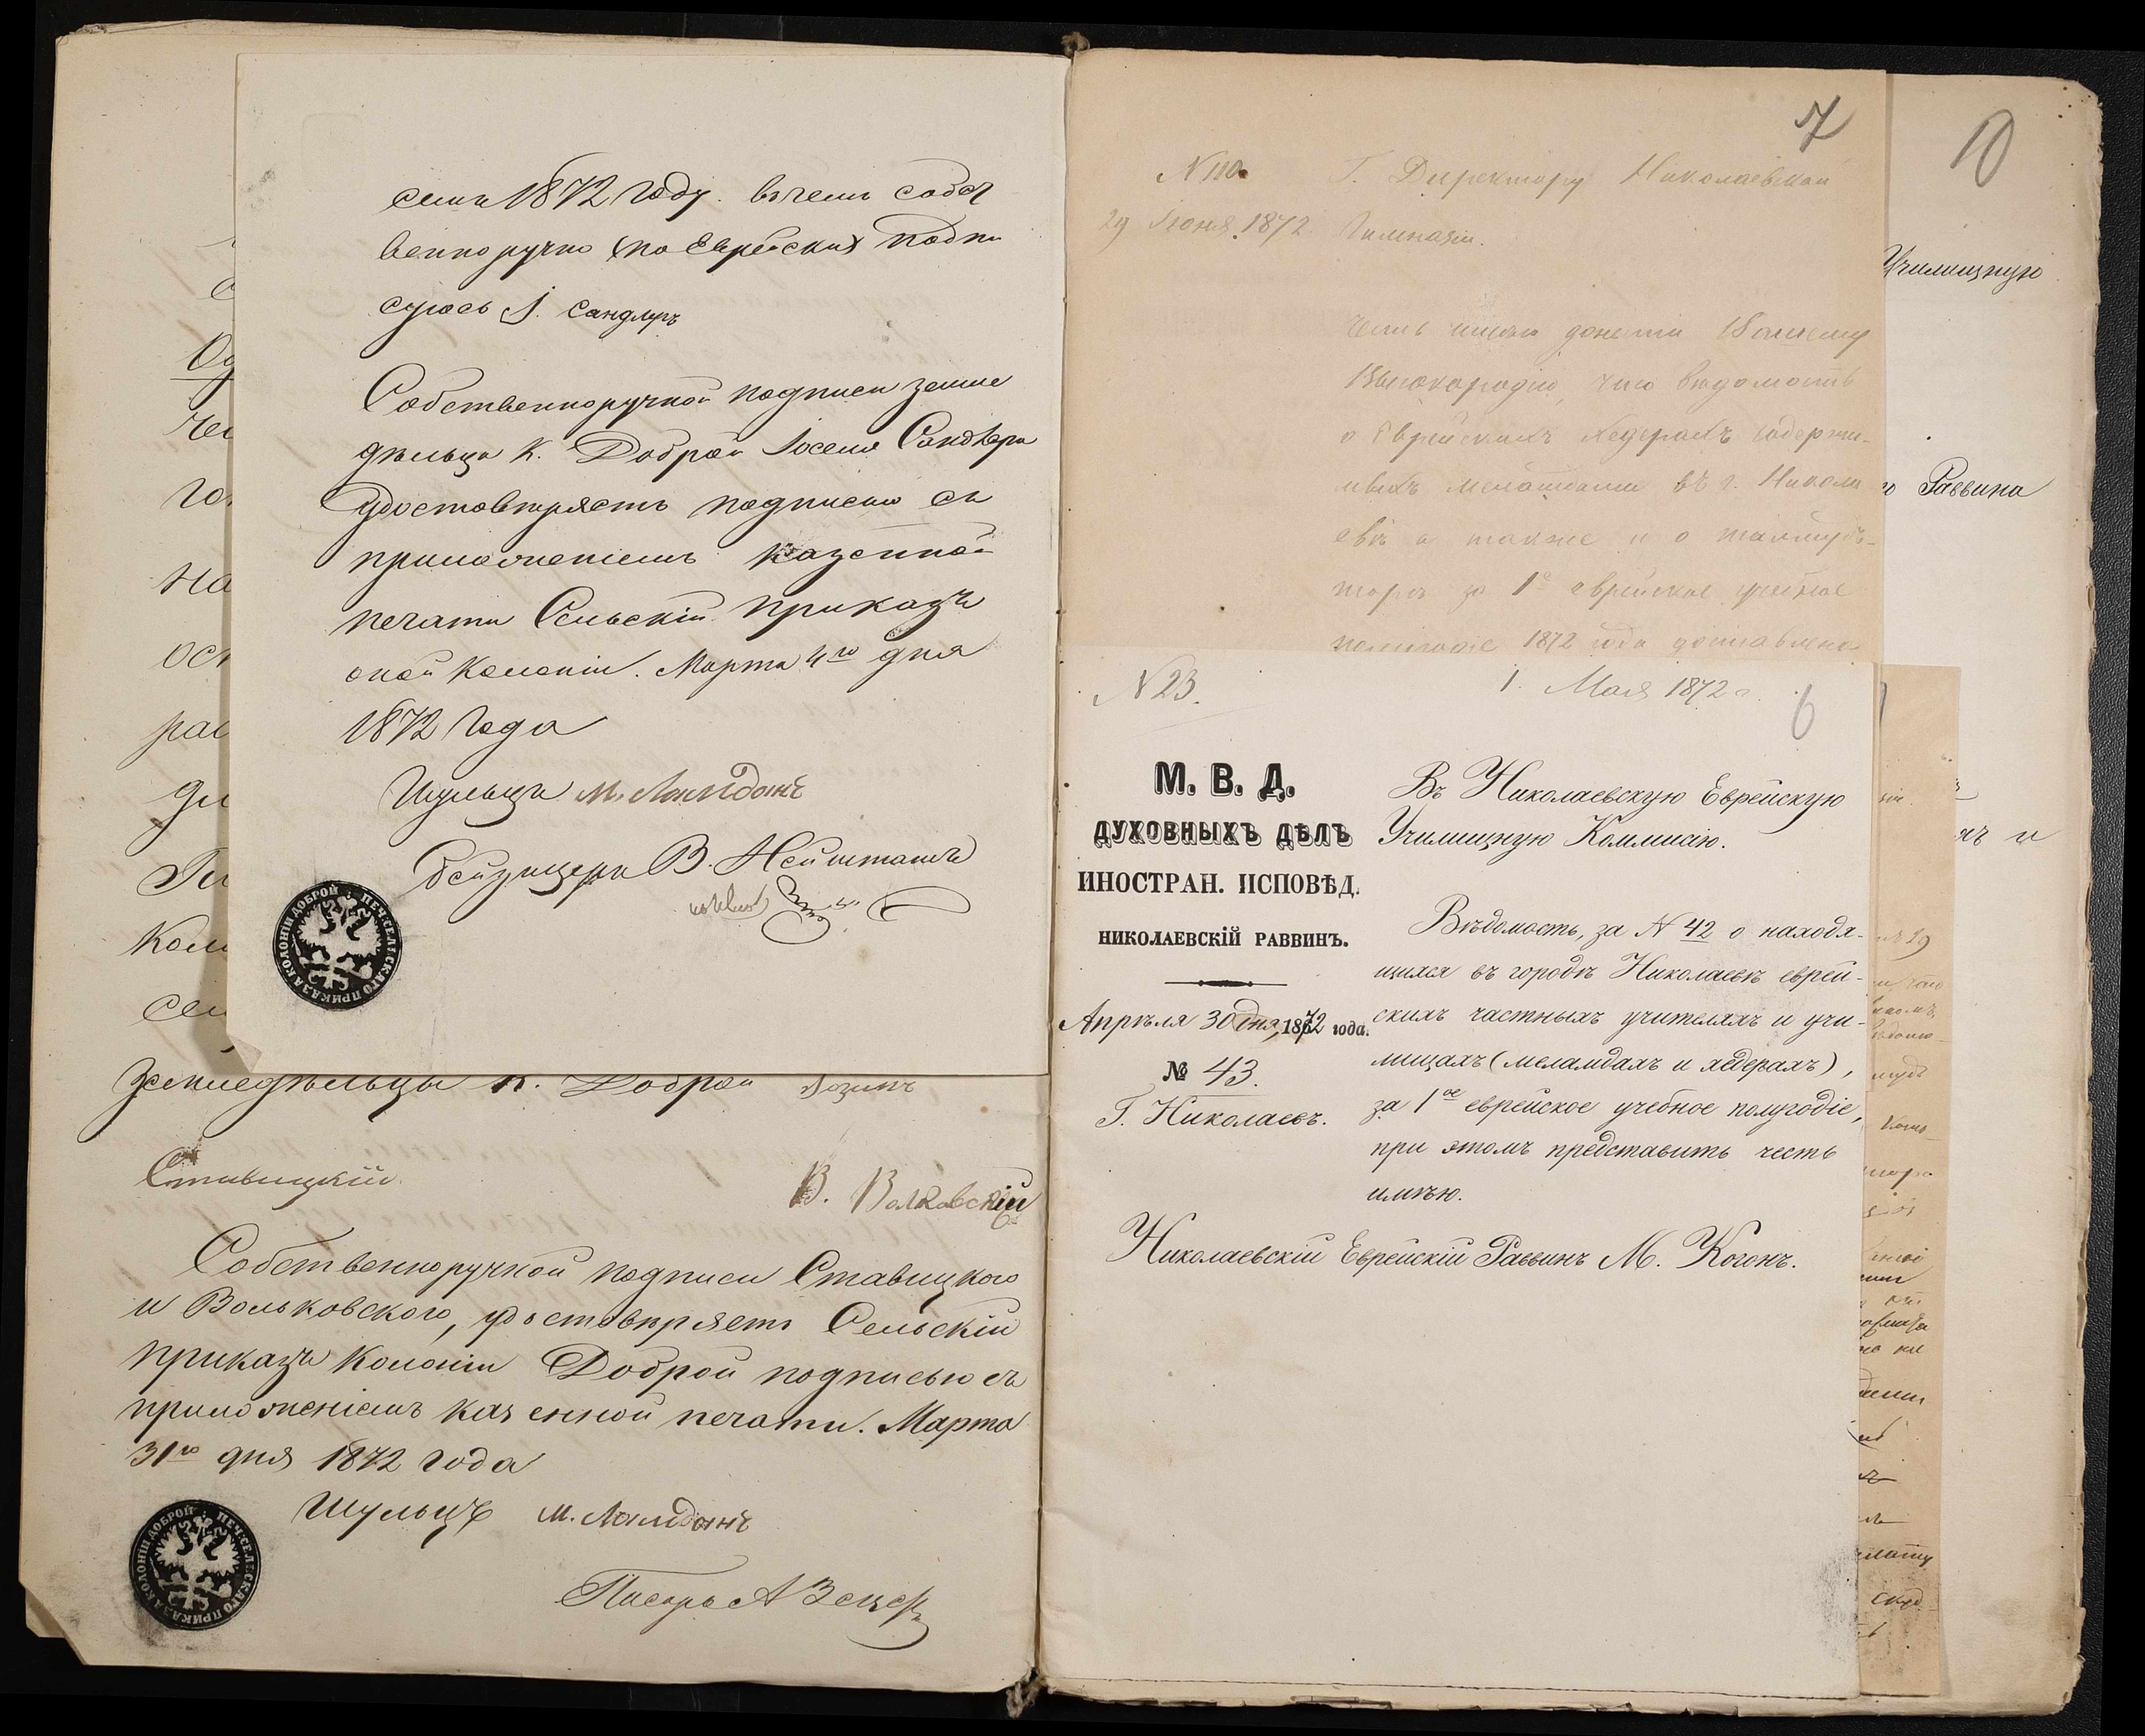 семъ 1872 году. въ чемъ собст
венноручно (по Еврейски) подпи
суюсь І. Сандлеръ
Собственноручной подписи земле
дѣльца к. Доброй Іоселя Сандлера
удостовѣряетъ подписью съ
приложеніемъ казенной
печати Сельскій приказъ
оной колоніи. Марта 4го дня
1872 года
Шульцъ М. Ланданъ
Бейзицеръ В. Нейштатъ
ПЕЧ. СЕЛЬСКАГО ПРИКАЗА КОЛОНІИ ДОБРОЙ
Од
че
го
на
ос
рав
ди
Ги
коло
сем
земледѣльцы к. Доброй
Ставицкій
В. Волковскій
Собственноручной подписи Ставицкого
и Вольковского, удостовѣряетъ Сельскій
приказъ колоніи Доброй подписью съ
приложеніемъ казенной печати. Марта
31го дня 1872 года
Шульцъ М. Ланданъ
Писарь А Зецеръ
ПЕЧ. СЕЛЬСКАГО ПРИКАЗА КОЛОНІИ ДОБРОЙ
7
10
Г. Директору Николаевской
29 Іюня 1872 Гимназіи.
Честь имѣю донести Вашему
Высокородію, что вѣдомость
о Еврейскихъ хедерахъ содержи-
мыхъ меламдами въ г. Никола
евѣ а также и о талмудъ-
торѣ за 1е еврейское учебное
полугодіе 1872 года доставлена
Училищную
Раввина
N 23.
1. Мая 1872 г.
6
М. В. Д.
ДУХОВНЫХЪ ДѢЛЪ
ИНОСТРАН. ИСПОВѢД.
НИКОЛАЕВСКІЙ РАВВИНЪ.
Апрѣля 30 дня, 1872 года.
№ 43.
Г. Николаевъ.
Въ Николаевскую Еврейскую
Училищную Коммисію.
Вѣдомость, за N 42 о находя-
щихся въ городѣ Николаевѣ еврей-
скихъ частныхъ учителяхъ и учи-
лищахъ (меламдахъ и хедерахъ),
за 1ое еврейское учебное полугодіе,
при этомъ представить честь
имѣю.
Николаевскій Еврейскій Раввинъ М. Когонъ.